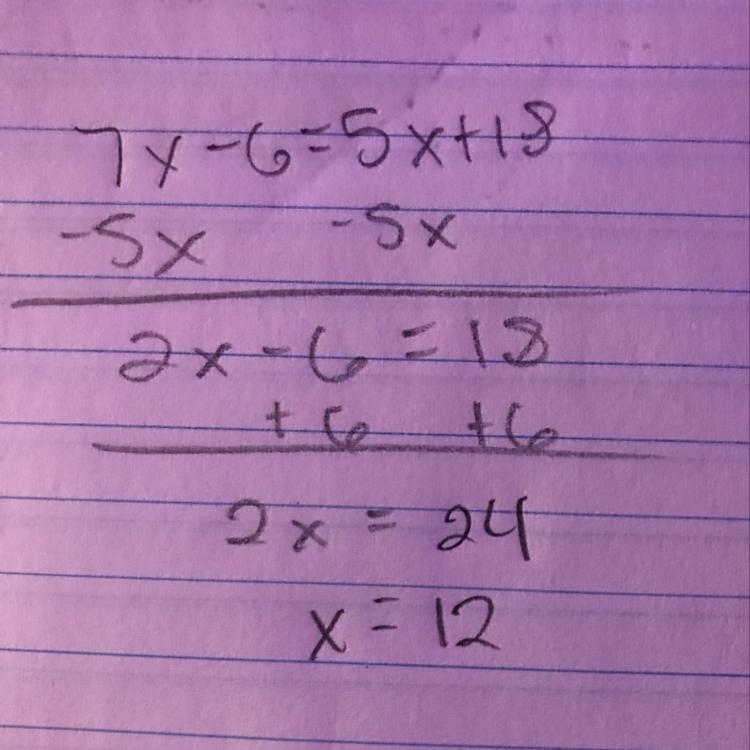 7x-6=5x+18
-5x -5x
2x-6=18
+6 +6
2x=24
x=12